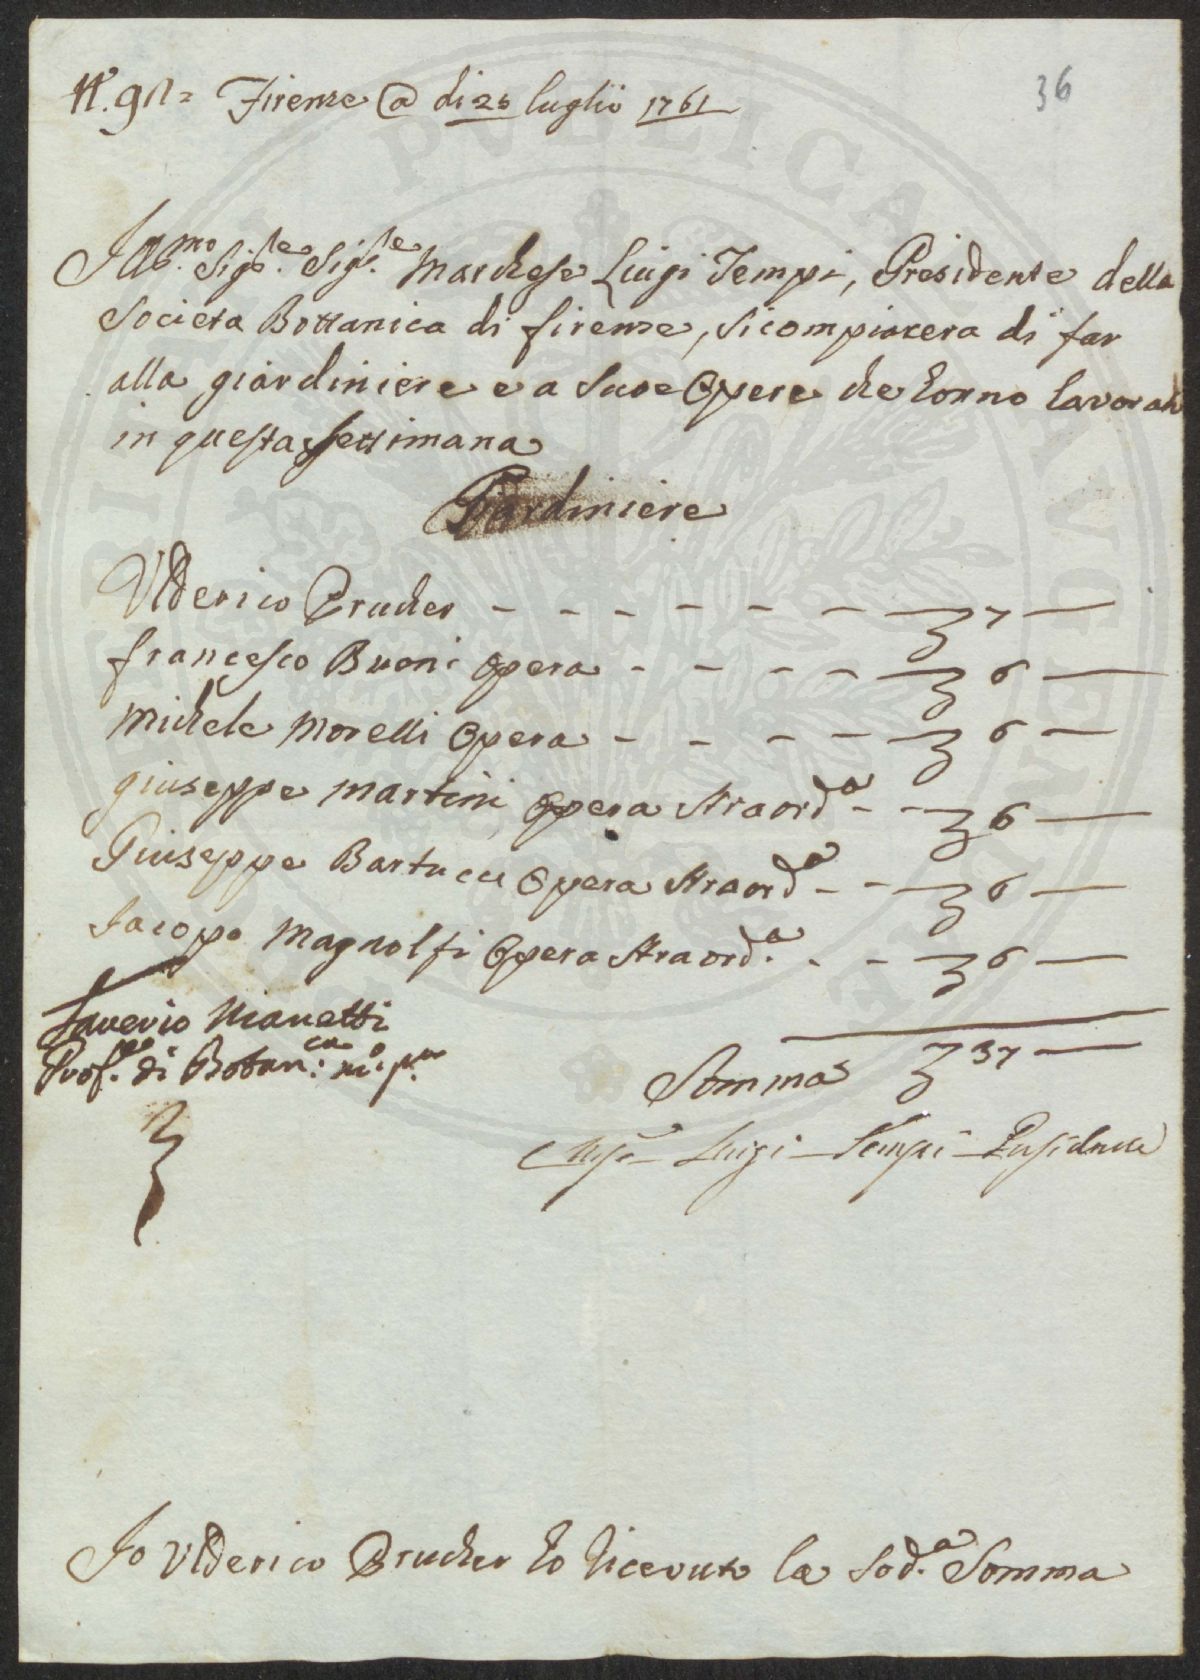 36
Firenze @ di 25 luglio 1761
Ill.mo Sig.re Sig.re Marchese Luigi Tempi, Presidente della
Societa Bottanica di firenze, si compiacera di far
alla giardiniere e a Sue Opere che hanno lavorato
in questa settimana
Giardiniere
Ulderico Prucher - - - - - - - 7 —
francesco Buoni Opera - - - - 6 —
Michele Morelli Opera - - - - 6 —
giuseppe Martini Opera straord.a - - 6 —
Giuseppe Bartucci Opera straord.a - - 6 —
Jacopo Magnolfi Opera straord.a - - 6 —
Saverio Manetti
Prof.re di Botan.ca m.o p.a
Somma 37 —
Luigi Tempi Presidente
Io Ulderico Prucher ho riceuuto la sod.a Somma